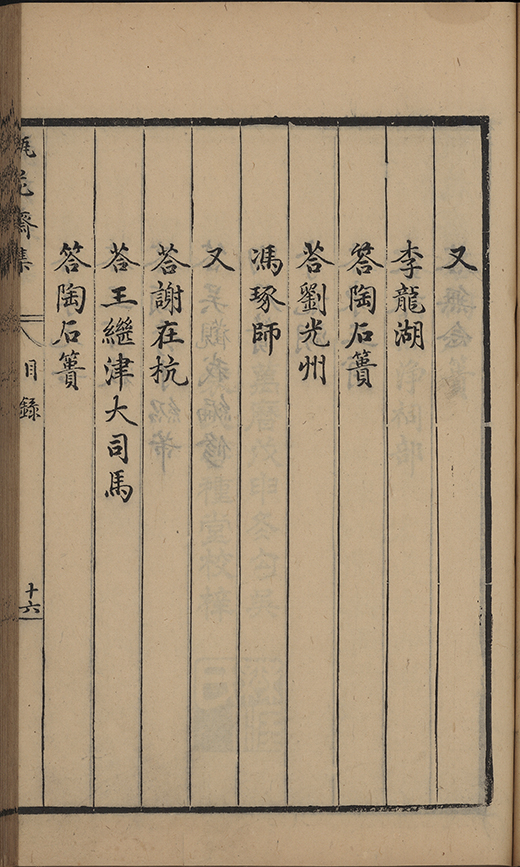 又
李龍湖
答陶石簣
荅劉光州
馮琢師
又
荅謝在杭
荅王繼津大司馬
答陶石簣
瓶花齋集
目錄
十六